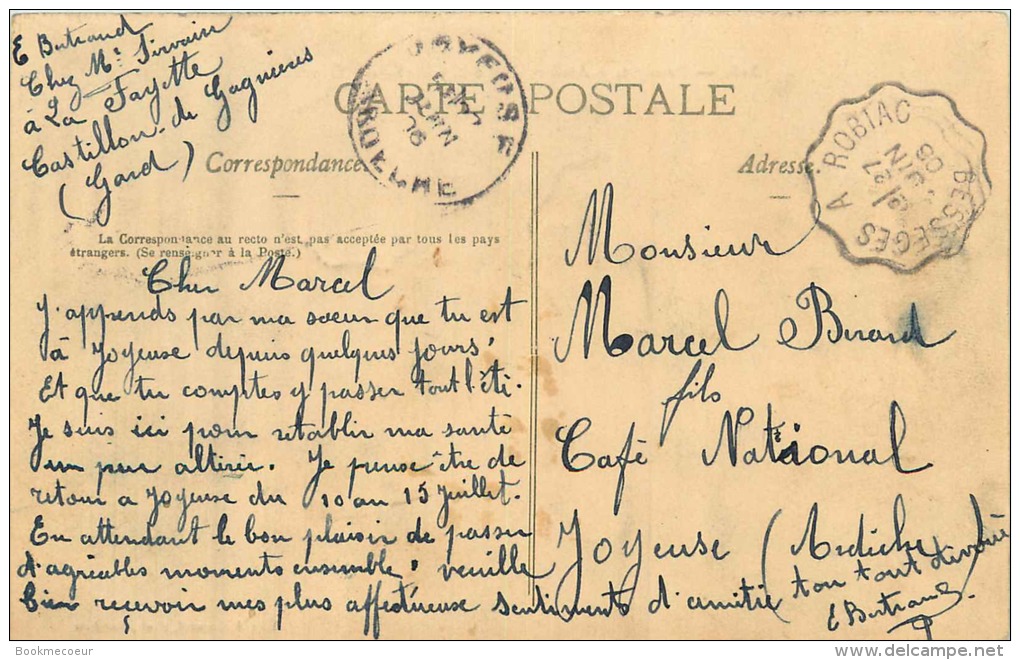 E Bertrand
Chez Mr Sirvain
à La Fayette
Castillon-de Gagnières
(Gard)
CARTE POSTALE
JOYEUSE
JUIN
06
ARDECHE
BESSEGES A ROBIAC
27
JUIN
06
Correspondance.
Adresse.
La Correspondance au recto n'est pas acceptée par tous les pays
étrangers. (Se renseigner à la Poste.)
Cher Marcel
J'apprends par ma sœur que tu est
à Joyeuse depuis quelques jours,
Et que tu comptes y passer tout l'été.
Je suis ici pour rétablir ma santé
un peu altérée. Je pense être de
retour a Joyeuse du 10 au 15 Juillet.
En attendant le bon plaisir de passer
d'agréables moments ensemble, veuille
bien recevoir mes plus affectueuse sentiments d'amitié ton tout dévoué
E Bertrand
Monsieur
Marcel Berard
fils
Café National
Joyeuse (Ardèche)
Bookmecoeur
www.delcampe.net